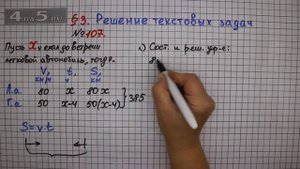 4.0.5.ru
§3. Решение текстовых задач
№ 107.
Пусть x ч ехал до встречи
легковой автомобиль, тогда.
V, км/ч t, ч S, км
Л.а. 80 x 80x
Г.а. 50 x-4 50(x-4) } 385
S=v·t
1) Сост. и реш. ур-е:
8